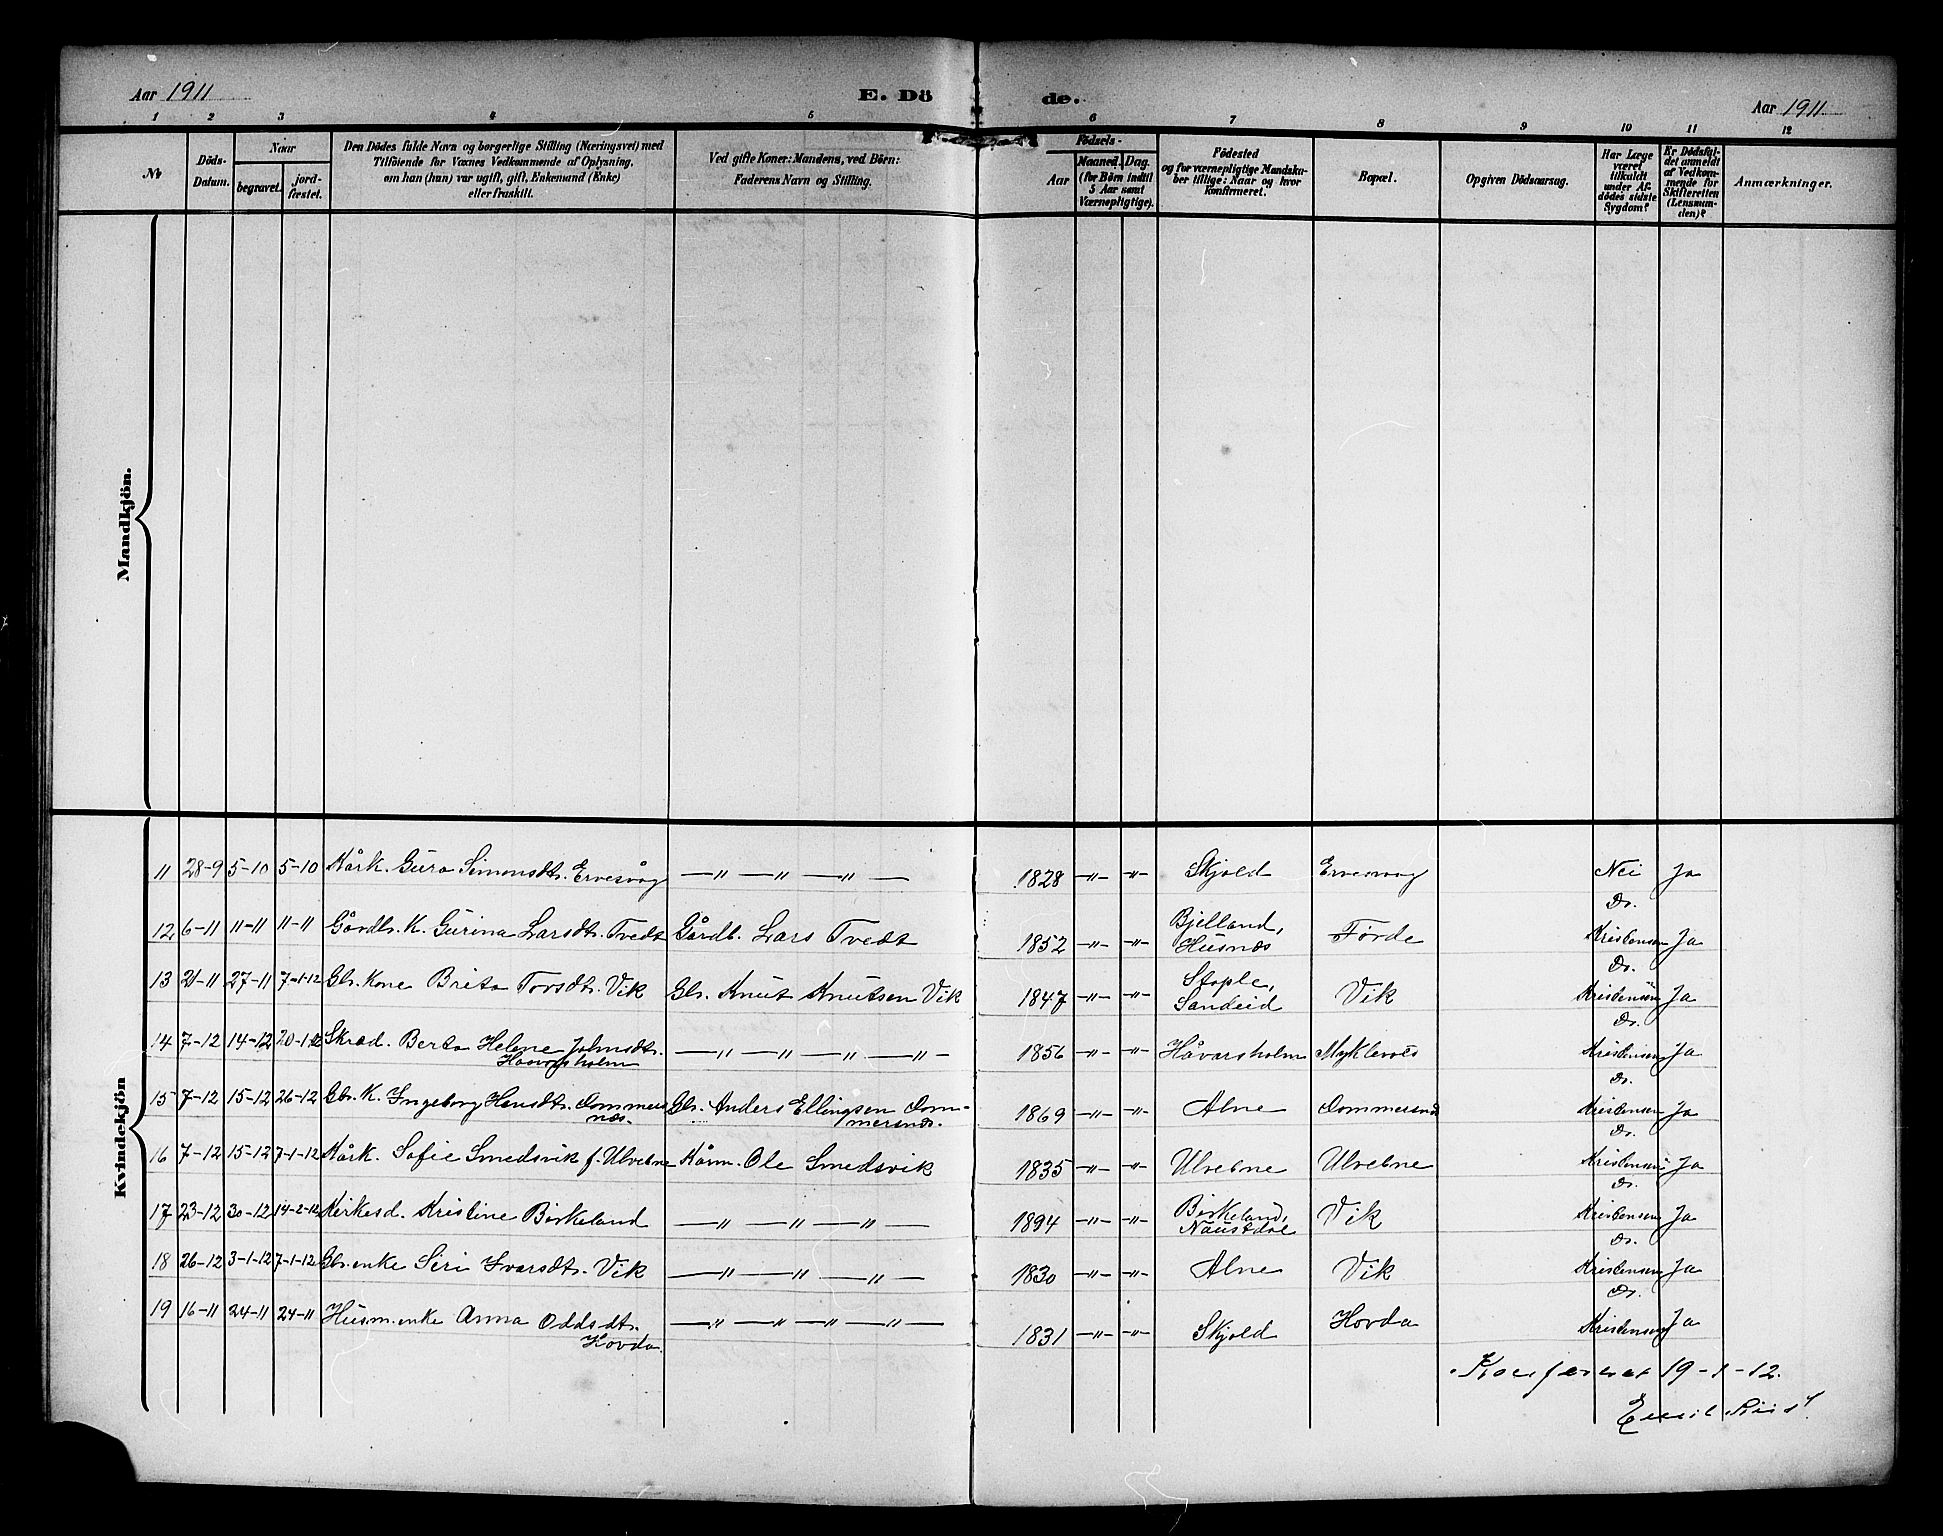 Aar 1911
E. Dö
de.
Aar 1911
1 2 3 4 5 6 7 8 9 10 11 12
№
Döds-
Datum.
Naar
begravet.
jord-
fæstet.
Den Dödes fulde Navn og borgerlige Stilling (Næringsvei) med
Tilföiende for Voxnes Vedkommende af Oplysning,
om han (hun) var ugift, gift, Enkemand (Enke)
eller fraskilt.
Ved gifte Koner: Mandens, ved Börn:
Faderens Navn og Stilling.
Födsels-
Aar
Maaned. Dag.
(for Börn indtil
5 Aar samt
Værnepligtige).
Födested
og for værnepligtige Mandsku-
ber tillige: Naar og hvor
konfirmeret.
Bopæl.
Opgiven Dödsaarsag.
Har Læge
været
tilkaldt
under Af-
dödes sidste
Sygdom?
Er Dödsfal-
det anmeldt
af Vedkom-
mende for
Skifteretten
(Lensman-
den)?
Anmærkninger.
Mandkjön.
Kvindekjön
11 28-9 5-10 5-10 Kårk. Guro Simonsdt. Ervesvåg —"—"—"— 1828 -"- -"- Skjold Ervesvåg Nei Ja
12 6-11 11-11 11-11 Gårdbr. K. Gurina Larsdt. Tvedt Gårdb. Lars Tvedt 1852 -"- -"- Bjelland, Husnæs Förde Dr. Kristensen Ja
13 21-11 27-11 7-1-12 Gbr. Kone Brita Torsdt. Vik Gbr. Knut Knutsen Vik 1847 -"- -"- Stople, Sandeid Vik Dr. Kristensen Ja
14 7-12 14-12 20-1-12 Skræd. Berta Helene Johnsdt. Håvarsholm —"—"—"—"— 1856 -"- -"- Håvarsholm Myklevoes Dr. Kristensen Ja
15 7-12 15-12 26-12 Gbr. K. Ingeborg Hansdt. Dommersnæs. Gbr. Anders Ellingsen Dommersnæs. 1869 -"- -"- Alne Dommersnæs Dr. Kristensen Ja
16 7-12 15-12 7-1-12 Kårk. Sofie Smedsvik f. Ulvebne Kårm. Ole Smedsvik 1835 -"- -"- Ulvebne Ulvebne Dr. Kristensen Ja
17 23-12 30-12 14-2-12 Kirkesd. Kristine Birkeland —"—"—"— 1894 -"- -"- Birkeland, Naustdal Vik Dr. Kristensen Ja
18 26-12 3-1-12 7-1-12 Gbr. enke Siri Ivarsdt. Vik —"—"—"— 1830 -"- -"- Alne Vik Dr. Kristensen Ja
19 16-11 24-11 24-11 Husm. enke Anna Oddsdt. Hovda. —"—"—"—"— 1831 -"- -"- Skjold Hovda Dr. Kristensen Ja
Konfereret 19-1-12.
Emil Riis